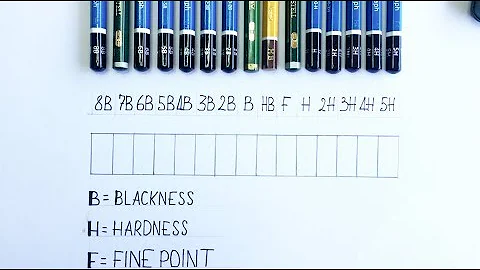 8B 7B 6B 5B 4B 3B 2B B HB F H 2H 3H 4H 5H
B = BLACKNESS
H = HARDNESS
F = FINE POINT